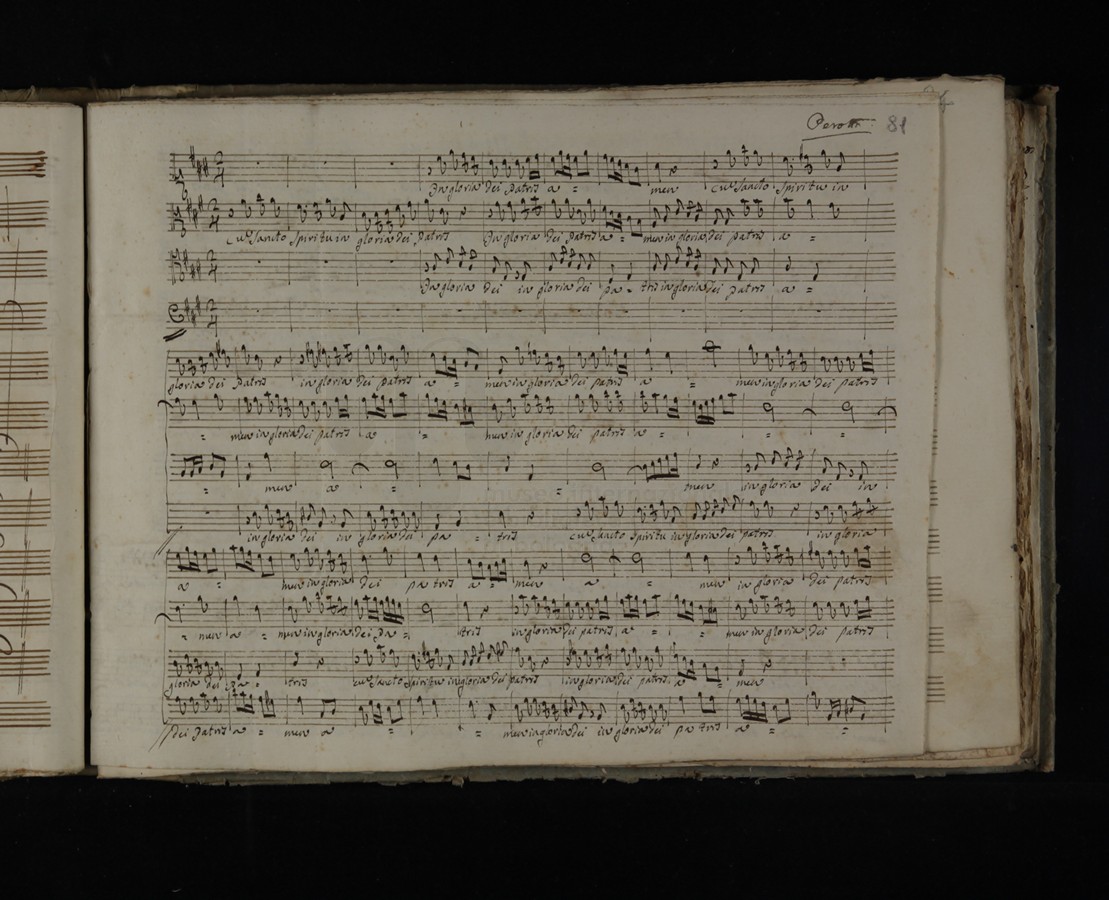 Perotti 81
In gloria Dei Patris a = men Cum Sancto Spiritu in
Cum Sancto Spiritu in gloria dei patris In gloria Dei Patris a = men in gloria dei patris a =
In gloria Dei in gloria Dei pa = tris in gloria Dei patris a =
gloria Dei Patris in gloria Dei patris a = men in gloria Dei patris a = men in gloria Dei patris
= men in gloria Dei patris a = men in gloria Dei patris a = = =
= men a = = men in gloria Dei in
in gloria Dei in gloria Dei pa = tris cum Sancto Spiritu in gloria Dei patris in gloria
a = men in gloria Dei patris a = men a = men in gloria Dei patris
= men a = men in gloria Dei Pa = tris in gloria Dei patris, a = = men in gloria Dei patris
gloria Dei Pa = tris cum Sancto Spiritu in gloria Dei patris in gloria Dei patris, a = men
Dei Patris a = men a = = men in gloria Dei in gloria Dei patris a = =